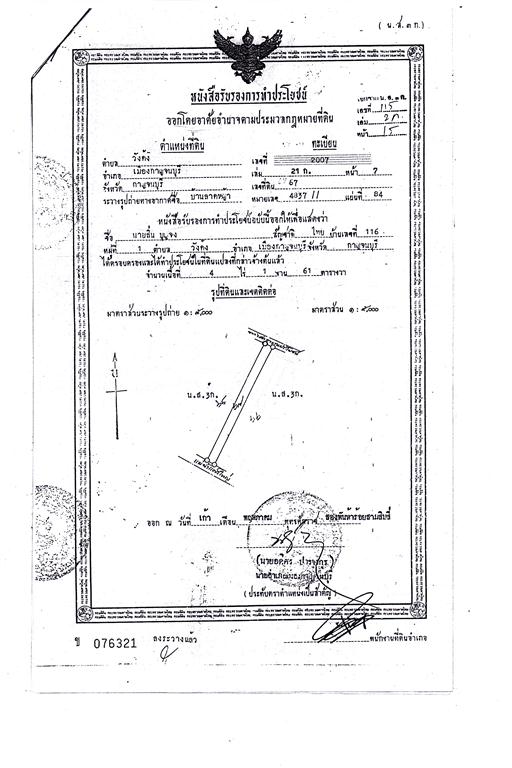 ( น.ส.๓ ก.)
หนังสือรับรองการทำประโยชน์
ออกโดยอาศัยอำนาจตามประมวลกฎหมายที่ดิน
เลขที่ 115
เล่ม 2ก.
หน้า 15
ตำแหน่งที่ดิน
ทะเบียน
ตำบล วังด้ง
เลขที่ 2007
อำเภอ เมืองกาญจนบุรี
เล่ม 21 ก. หน้า 7
จังหวัด กาญจนบุรี
เลขที่ดิน 67
ระวางรูปถ่ายทางอากาศชื่อ บ้านลาดหญ้า
หมายเลข 4837 II แผ่นที่ 84
หนังสือรับรองการทำประโยชน์ฉบับนี้ออกให้เพื่อแสดงว่า
ชื่อ นายยื่น สัญชาติ ไทย บ้านเลขที่ 116
หมู่ที่ 1 ตำบล วังด้ง อำเภอ เมืองกาญจนบุรี จังหวัด กาญจนบุรี
ได้ครอบครองและได้ทำประโยชน์ในที่ดินแปลงที่กล่าวข้างต้นแล้ว
จำนวนเนื้อที่ 4 ไร่ 1 งาน 61 ตารางวา
รูปที่ดินและเขตติดต่อ
มาตราส่วนระวางรูปถ่าย ๑ : ๕,๐๐๐
มาตราส่วน ๑ : ๕,๐๐๐
น.ส.3ก.
น.ส.3ก.
ออก ณ วันที่ เก้า เดือน พฤษภาคม พุทธศักราช สองพันห้าร้อยสามสิบสี่
( ประทับตราตำแหน่งเป็นสำคัญ)
ข 076321
ลงระวางแล้ว
พนักงานที่ดินอำเภอ